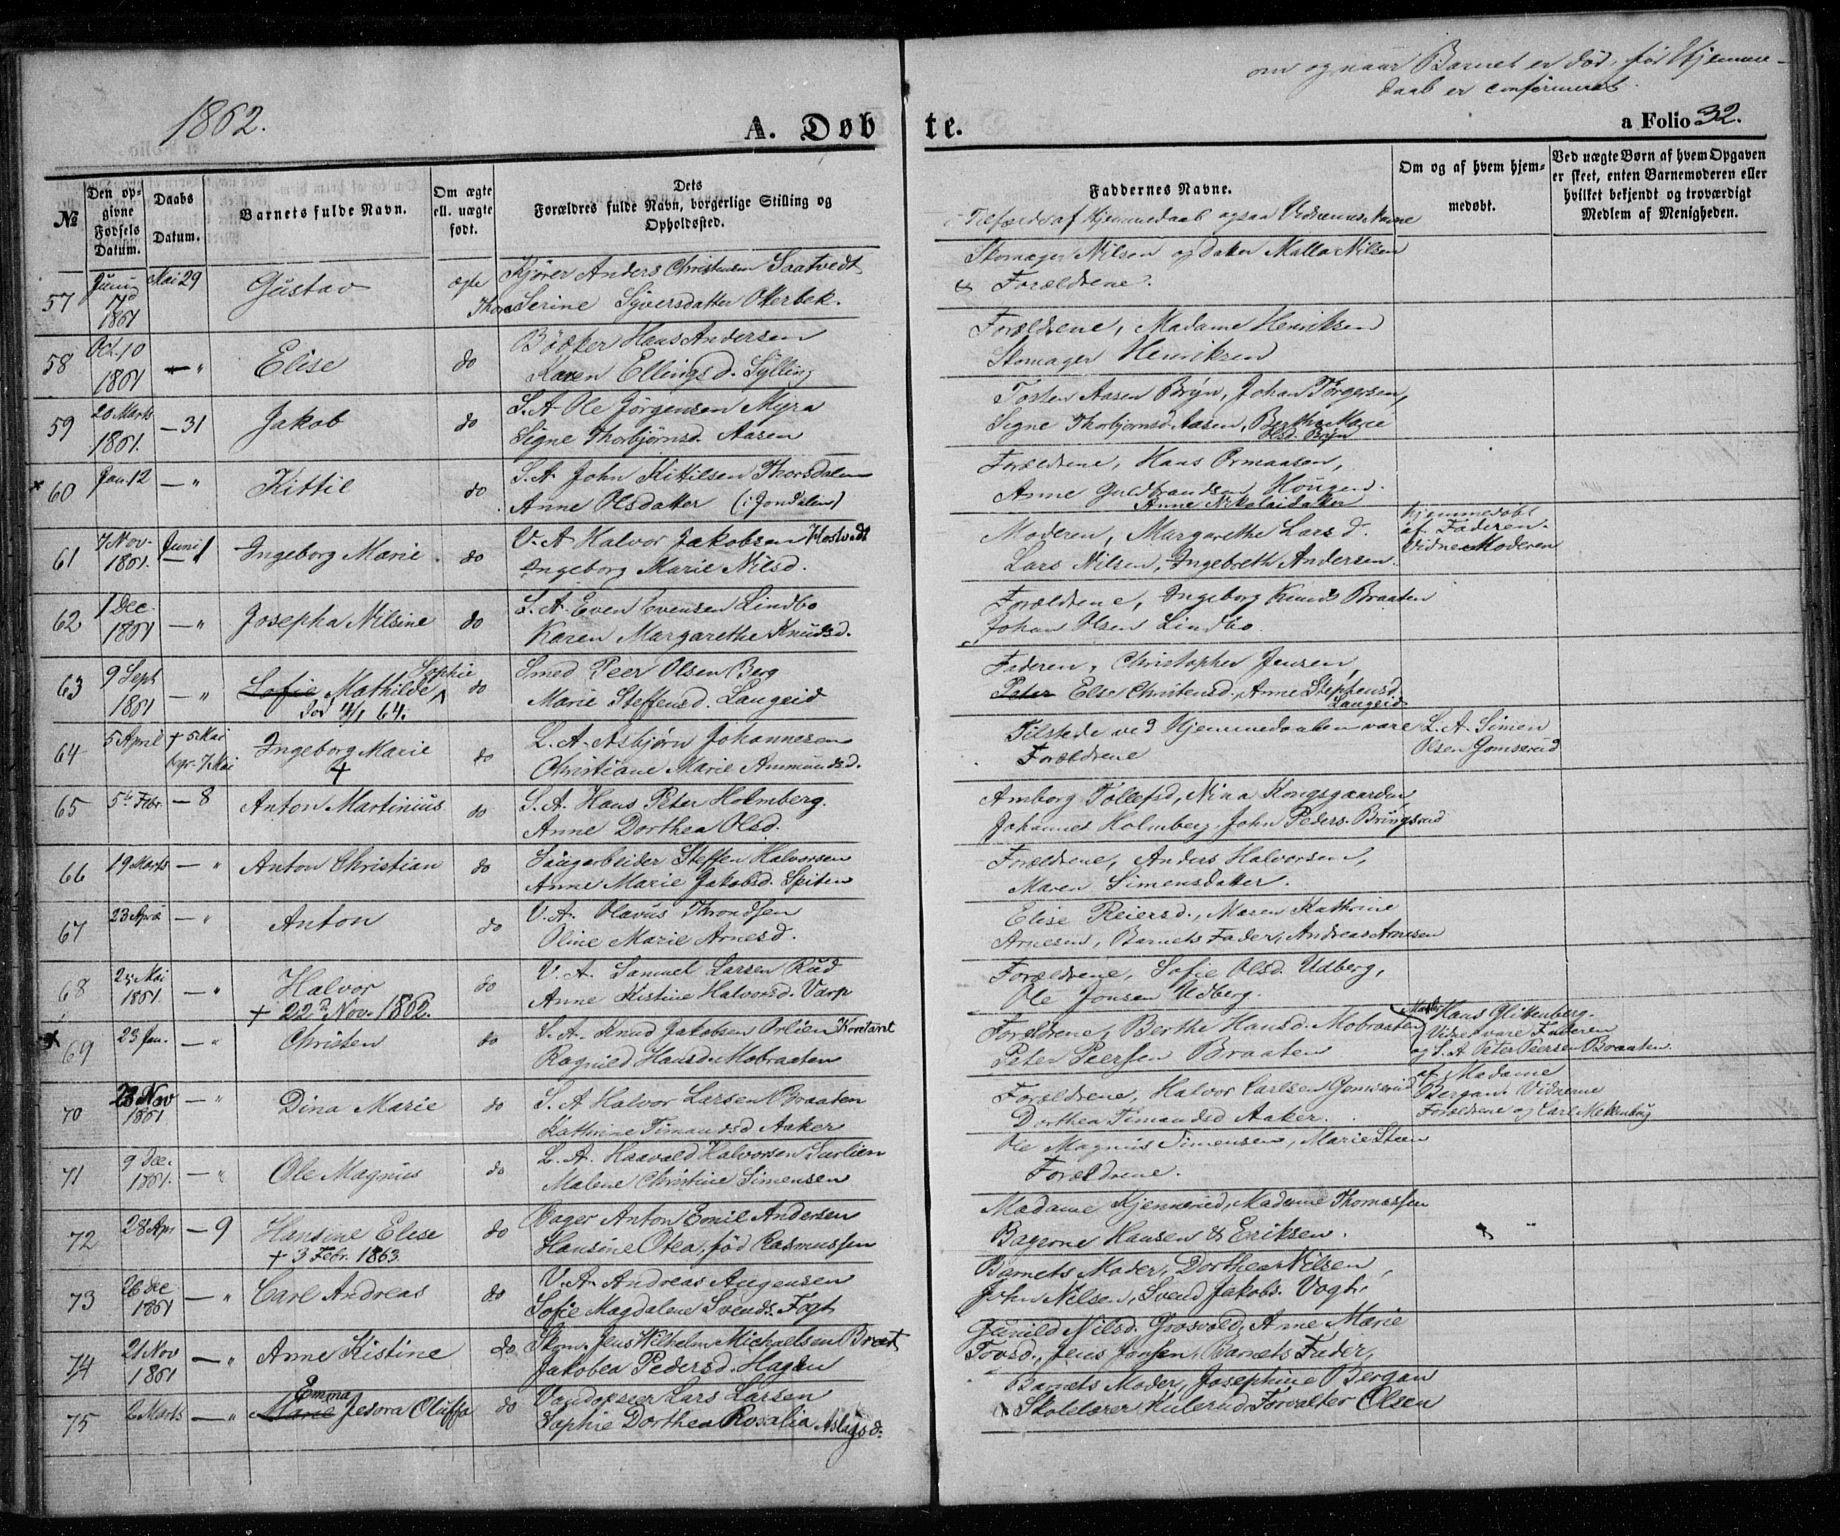 om og naar Barnet er død, før Hjemme-
daab er confirmerat.
1862.
A. Døbte.
a Folio 32.
№
Den op-
givne
Fødsels
Datum.
Daabs
Datum.
Barnets fulde Navn.
Om ægte
ell. uægte
født.
Dets
Forældres fulde Navn, borgerlige Stilling og
Opholdssted.
Faddernes Navne.
i Tilfælde af Hjemmedaab ogsaa Vidnernes Navne
Om og af hvem hjem-
medøbt.
Ved uægte Børn af hvem Opgaven
er skeet, enten Barnemoderen eller
hvilket bekjendt og troværdigt
Medlem af Menigheden.
57 Juni 17d 1861 Mai 29 Gustav ægte
Kjører Anders Christensen Saatvedt
Thore Serine Syversdatter Oterbek.
Skomager Nilsen og Datter Malla Nilsen
& Forældrene.
58 Oct. 10 1861 — " Elise do
Bødker Hans Andersen
Karen Ellingsd. Sylling
Forældrene, Madame Henriksen
Skomager Henriksen
59 20 Marts 1861. — 31 Jakob do
S. A. Ole Jørgensen Myra
Signe Thorbjørnsd. Aasen
Tosten Aasen Bryn, Johan Torgersen,
Signe Thorbjørnsd. Aasen, Berthe Marie
Olsd. Bryn
x 60 Jan. 12 — " Kittil do
S. A. John Kittilsen Thorsdalen
Anne Olsdatter (: Jondalen)
Forældrene, Hans Ormaasen,
Anne Guldbrandsen Hougen.
Anne Nikolaidatter
61 7 Nov. 1861. Juni 1 Ingeborg Marie do
V. A. Halvor Jakobsen Hostvedt
Ingeborg Marie Nilsd.
Moderen, Margarethe Larsd.
Lars Nilsen, Ingebreth Andersen.
Hjemmedøbt
af Faderen.
Vidne Moderen
62 1 Dec. 1861 — " Josepha Nilsine do
S. A. Even Evensen Lindbo
Karen Margarethe Knudsd.
Forældrene, Ingeborg Knuds Braaten
Johan Olsen Lindbo.
63 9 Sept 1861 — " Sofie Mathilde Sophie do
død 4/1 64.
Smed Peer Olsen Berg
Marie Steffensd. Langeid
Faderen, Christopher Jensen,
Peter Else Christensd., Anne Stephensd.
Langeid
64 5 April + 5 Mai
byr. 7 Mai Ingeborg Marie do
+
L. A. Asbjørn Johannesen
Christiane Marie Ammundsd.
Tilstede ved Hjemmedaaben vare
Forældrene
L. A. Simen
Olsen Gomserud
65 5te Febr. — 8 Anton Martinius do
S. A. Hans Peter Holmberg.
Anne Dorthea Olsd.
Amborg Tollefsd, Nina Kongsgaarden
Johannes Holmberg, John Peders. Bringsrud
66 19 Marts — " Anton Christian do
Saugarbeider Steffen Halvorsen
Anne Marie Jakobsd. Spiten
Forældrene, Anders Halvorsen,
Maren Simensdatter.
67 23 April — " Anton do
V. A. Olavus Throndsen
Oline Marie Arnesd.
Elise Reiersd., Maren Kathrine
Arnesen, Barnets Fader, Andreas Arnesen
68 25 Mai 1861 — " Halvor do
+ 22d Nov. 1862.
V. A. Samuel Larsen Rud
Anne Kistine Halvorsd. Varp
Forældrene, Sofie Olsd. Udberg,
Ole Jonsen Udberg.
x 69 23 Jan. — " Christen do
S. A. Knud Jakobsen Orlien
Ragnild Hansd. Mobraaten
Forældrene, Berthe Hansd. Mobraaten
Peter Peersen Braaten
Hans Glittenberg.
Vidner vare Faderen
og S. A. Peter Peersen Braaten.
70 23 Nov 1861 — " Dina Marie do
S. A. Halvor Larsen Braaten
Kathrine Timandsd Aaker
Forældrene, Halvor Carlsen Gomserud
Dorthea Timandsd Aaker.
af Madame
Bergan. Vidnerne
Forældrene og Carl Meklenburg
71 9 Dec. 1861. — " Ole Magnus do
L. A. Haavald Halvorsen Sarlien
Malene Christine Simensen
Ole Magnus Simensen, Marie Steen
Forældrene.
72 28 Apr — 9 Hansine Elise do
+ 3 Febr. 1863
Bager Anton Emil Andersen
Hansine Otea, fød Rasmussen
Madame Kjennerud, Madame Thomassen
Bagerne Hansen & Eriksen.
73 26 Dec 1861 — " Carl Andreas do
V. A. Andreas Augensen
Sofie Magdalene Svends. Fogt
Barnets Moder, Dorthea Nilsen,
John Nilsen, Svend Jakobs. Vogt,
74 21 Nov 1861 — " Anne Kistine do
Skom. Jens Wilhelm Michaelsen Bræt
Jakobea Pedersd. Hagen
Gunild Nilsd. Grosvold, Anne Marie
Tovsd., Jens Jansen, Barnets Fader,
75 2 Marts — " Marie Emma Jedora Oluffa do
Vandopsier Lars Larsen
Sophie Dorthea Rosalia Aslagsd.
Barnets Moder, Josephine Bergan
Skolelærer Hulerud, Forvalter Olsen